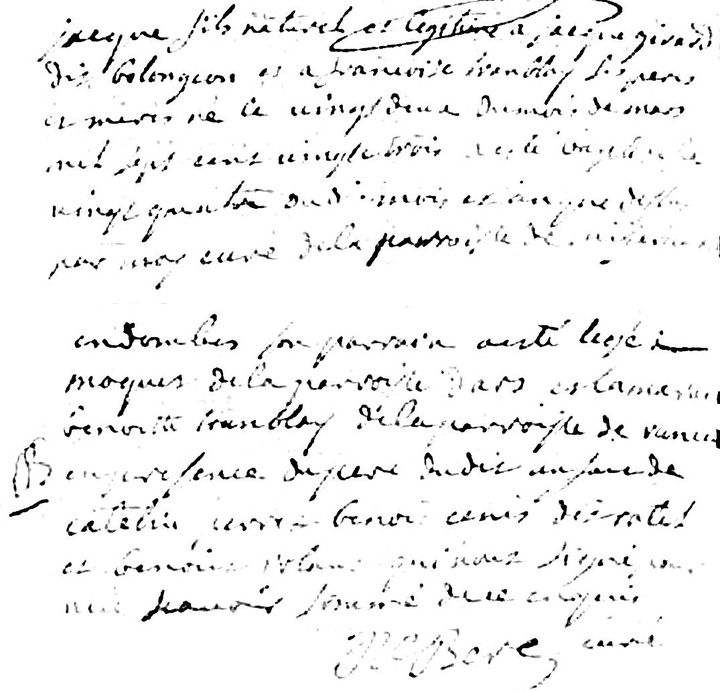 jacque fils naturel et legitime a jacque girard
dit bolongeon et a francoise tranblay ses peres
et meres né le vingt deux du mois de mars
mil sept cent vingt trois a esté baptisé le
vingt quatre du dit mois et an que dessus
par moy curé de la parroisse de
en dombes son parrain a esté legé
moques de la parroisse dars et la maraine
benoitte tranblay de la parroisse de
en presence du pere du dit enfant de
benoit dit ratet
et benoist qui n'ont signé pour
ne le scavoir sommé de ce enquis
curé